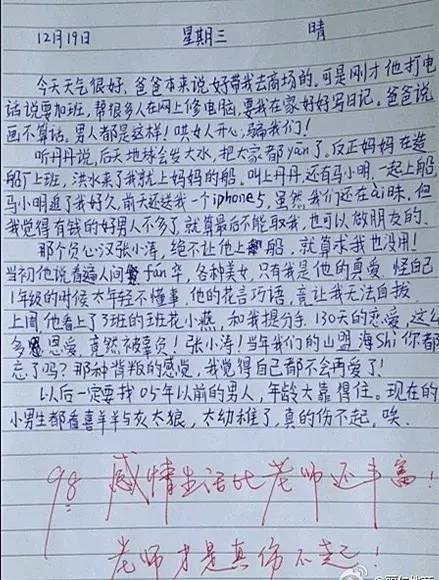 12月19日 星期三 晴
今天天气很好、爸爸本来说好带我去商场的。可是刚才他打电
话说要加班，帮很多人在网上修电脑，要我在家好好写日记。爸爸说
画不算话。男人都是这样！哄女人开心，骗我们！
听丹丹说，后天地球会发大水，把大家都yān了。反正妈妈在造
船厂上班，洪水来了我就上妈妈的船。叫上丹丹还有马小明，一起上船，
马小明追了我好久，前天还送我一个iphone5，虽然，我们还在ài昧，但
我觉得有钱的好男人不多了，就算最后不能取我，也可以做朋友的。
那个负心汉张小涛，绝不让他上船，就算求我也没用！
当初他说看遍人间fán华，各种美女，只有我是他的真爱，怪自己
1年级的时候太年轻不懂事，他的花言巧语，竟让我无法自拔，
上周他看上了3班的班花小燕，和我提分手，130天的恋爱，这么
多恩爱，竟然被辜负！张小涛！当年我们的山盟海Shì你都
忘了吗？那种背叛的感觉，我觉得自己都不会再爱了！
以后一定要找05年以前的男人，年龄大靠得住。现在的
小男生都看喜羊羊与灰太狼，太幼稚了，真的伤不起，唉、
98 感情生活比老师还丰富！
老师才是真伤不起！